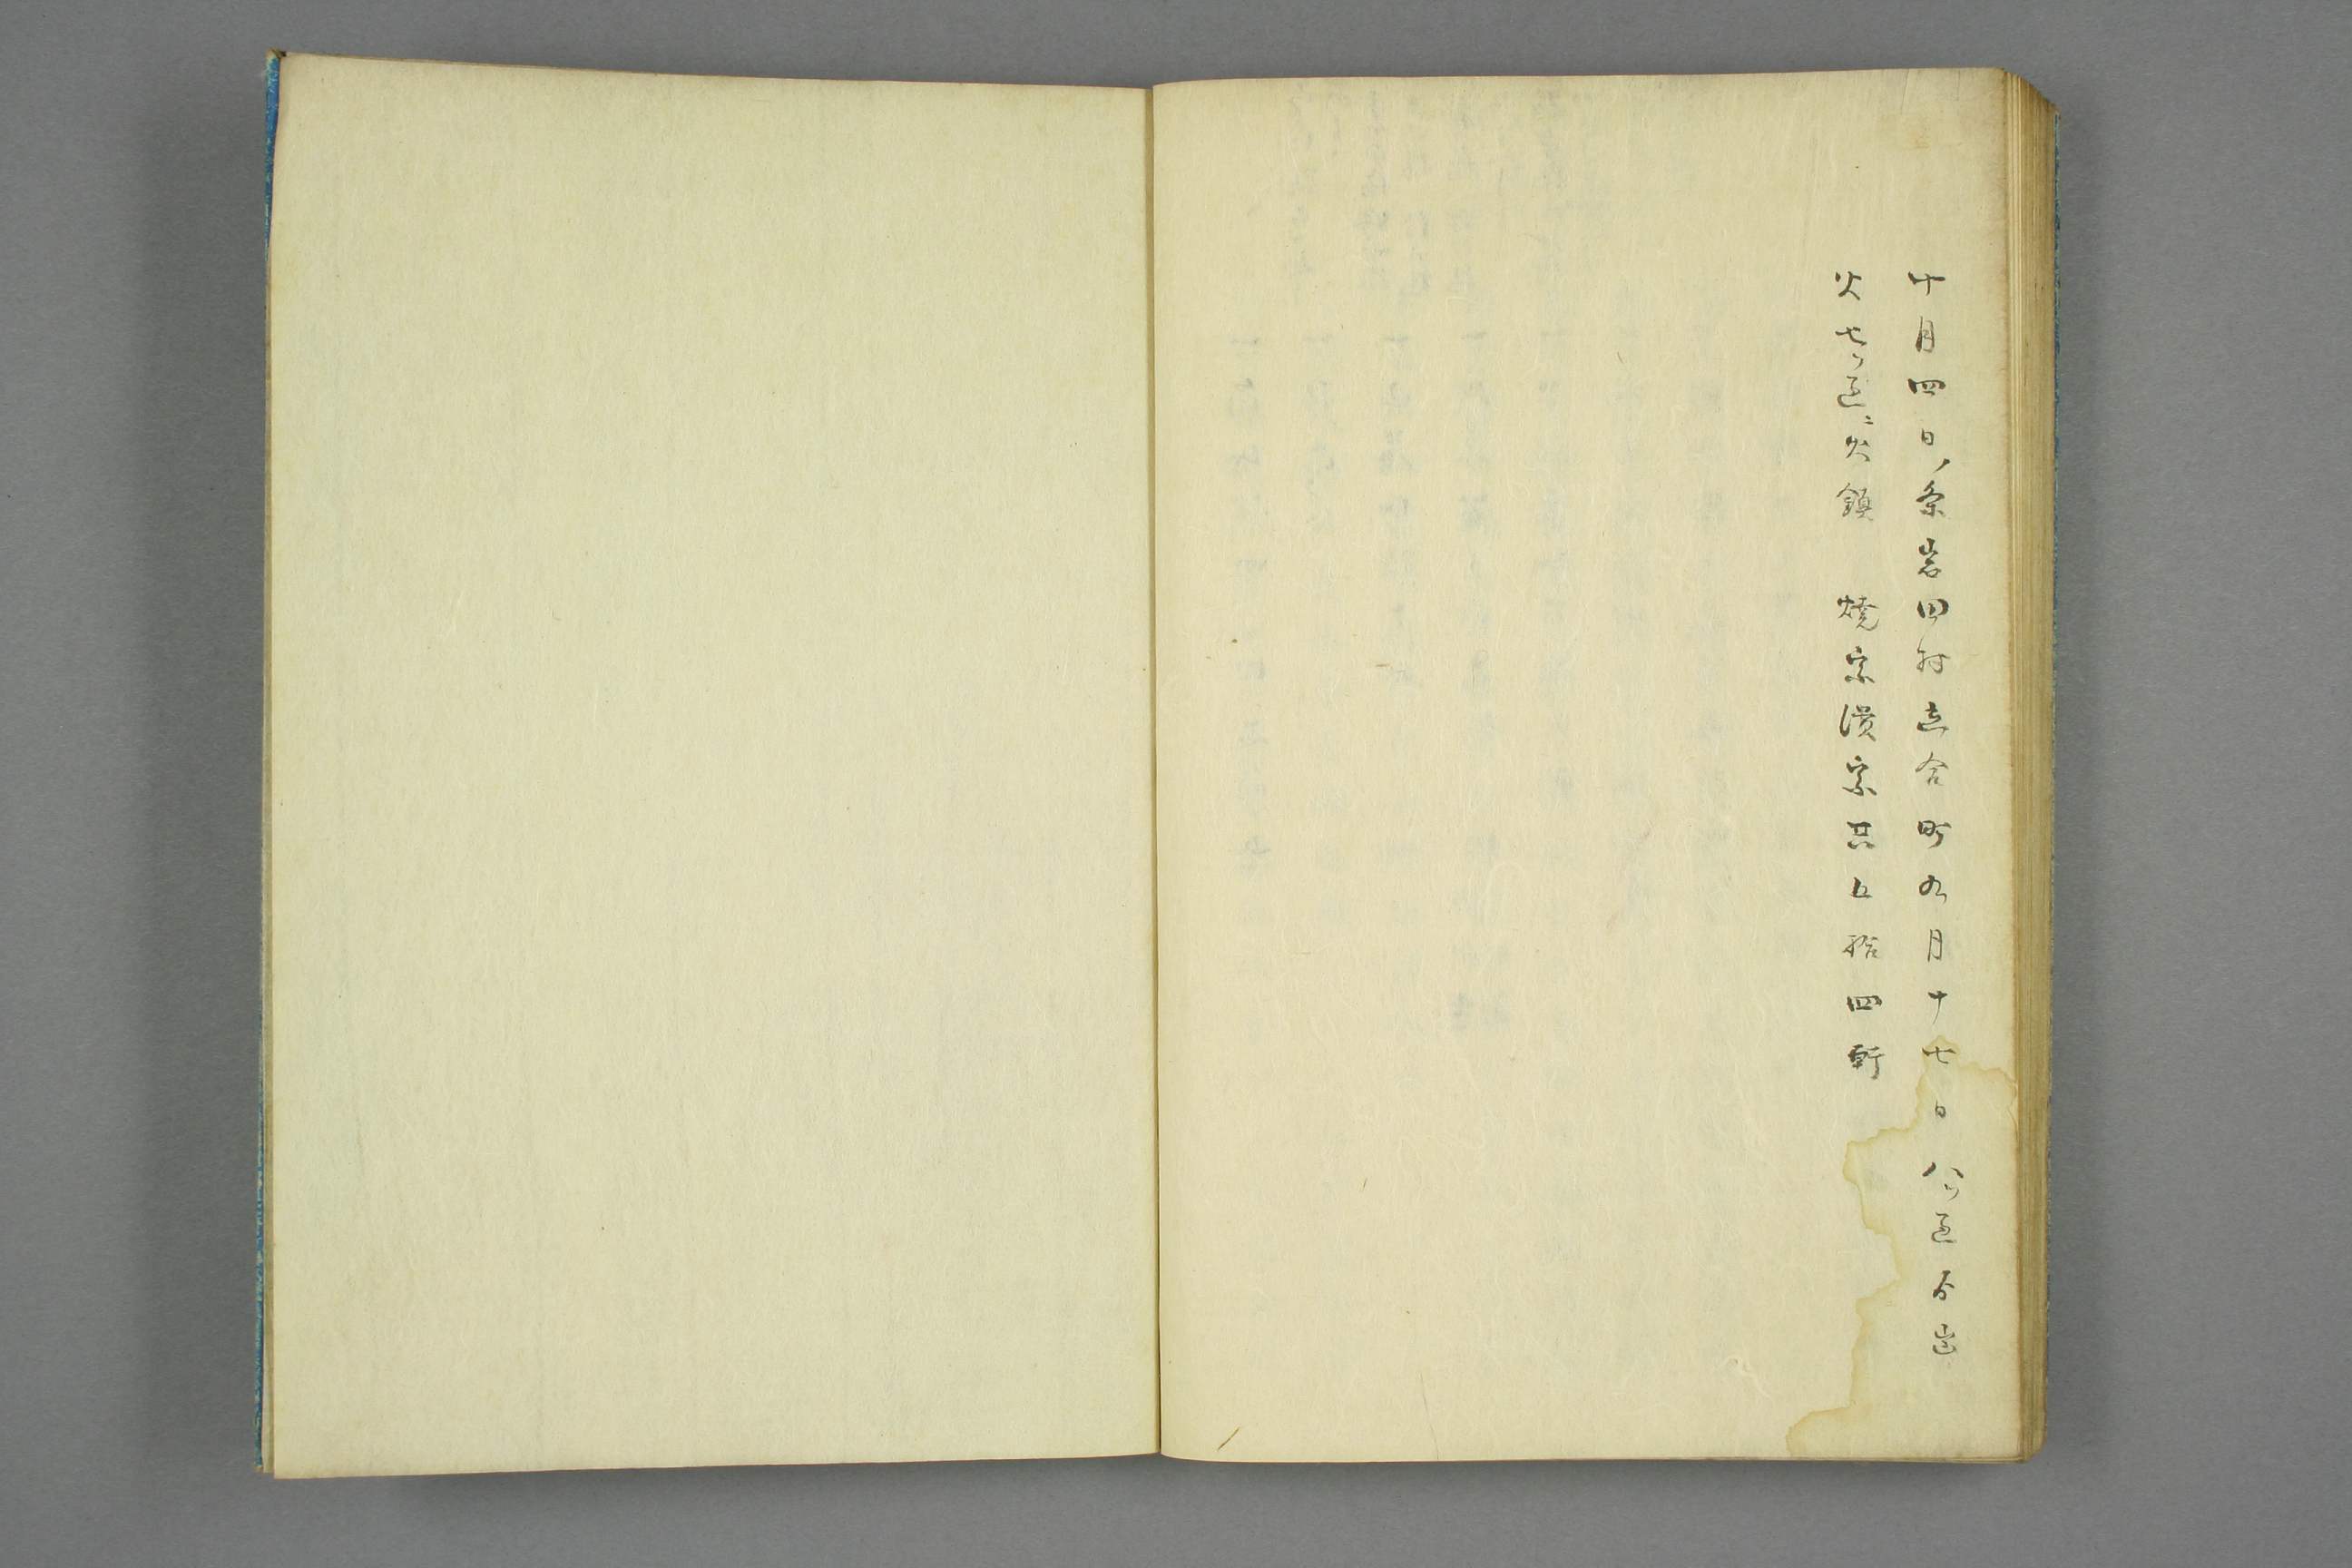 十月四日ノ条岩田村立合町九月十七日八ツ過ゟ出
火七ツ過ニ火鎮　焼家潰家共五拾四軒